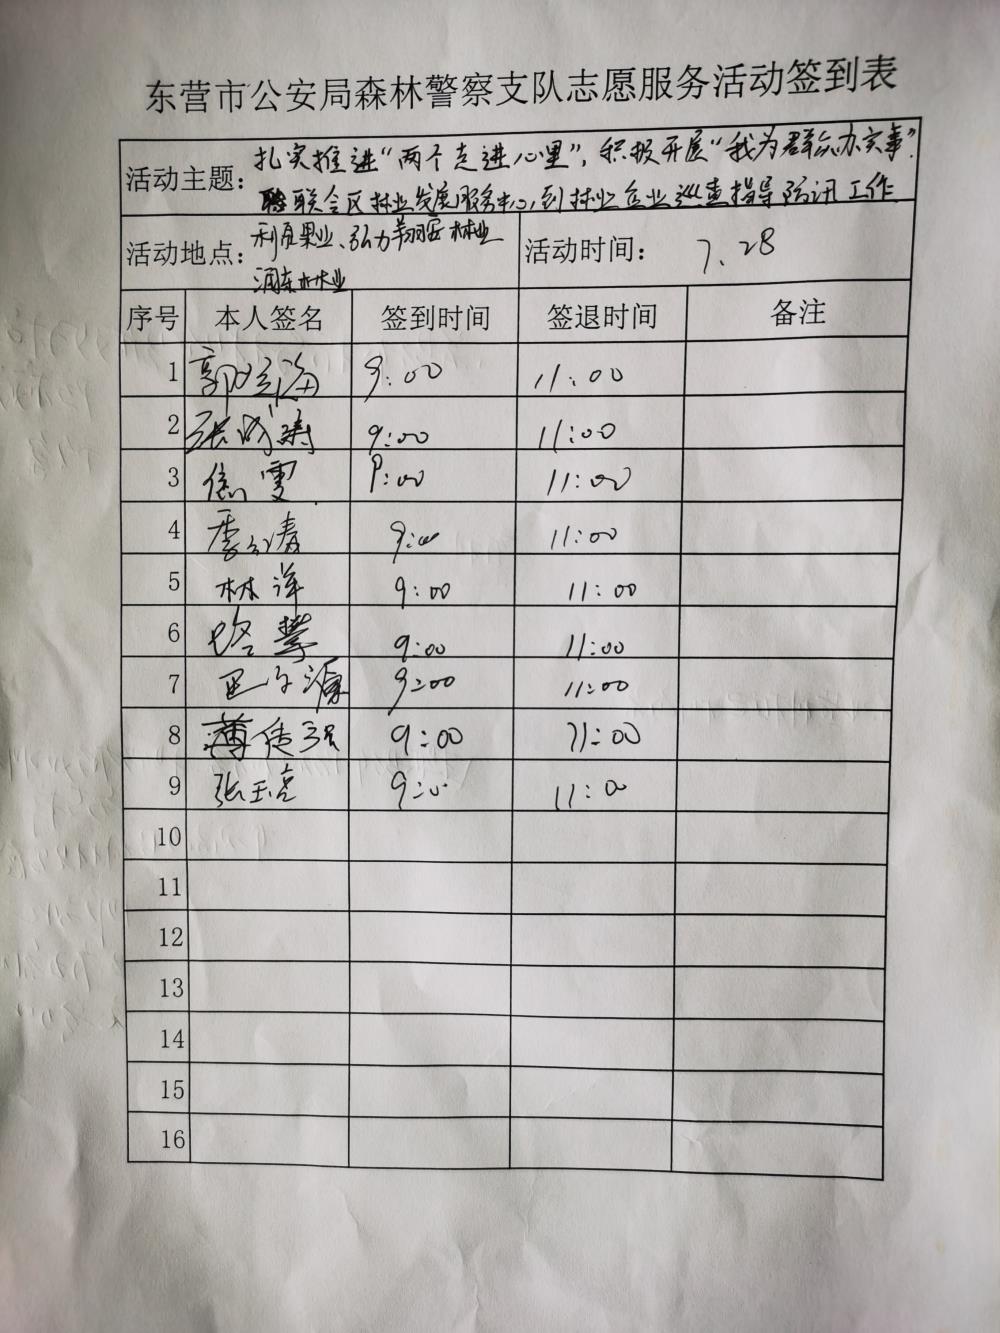 东营市公安局森林警察支队志愿服务活动签到表
活动主题: 扎实推进“两个走进心里”，积极开展“我为群众办实事”.
联合区林业发展服务中心，到林业企业巡查指导防汛工作
活动地点: 果业、弘力 林业 活动时间: 7.28
润东林业
序号 本人签名 签到时间 签退时间 备注
1 9:00 11:00
2 张成涛 9:00 11:00
3 焦雯 9:00 11:00
4 9:00 11:00
5 林洋 9:00 11:00
6 9:00 11:00
7 9:00 11:00
8 薄传强 9:00 11:00
9 张玉亮 9:00 11:00
10
11
12
13
14
15
16